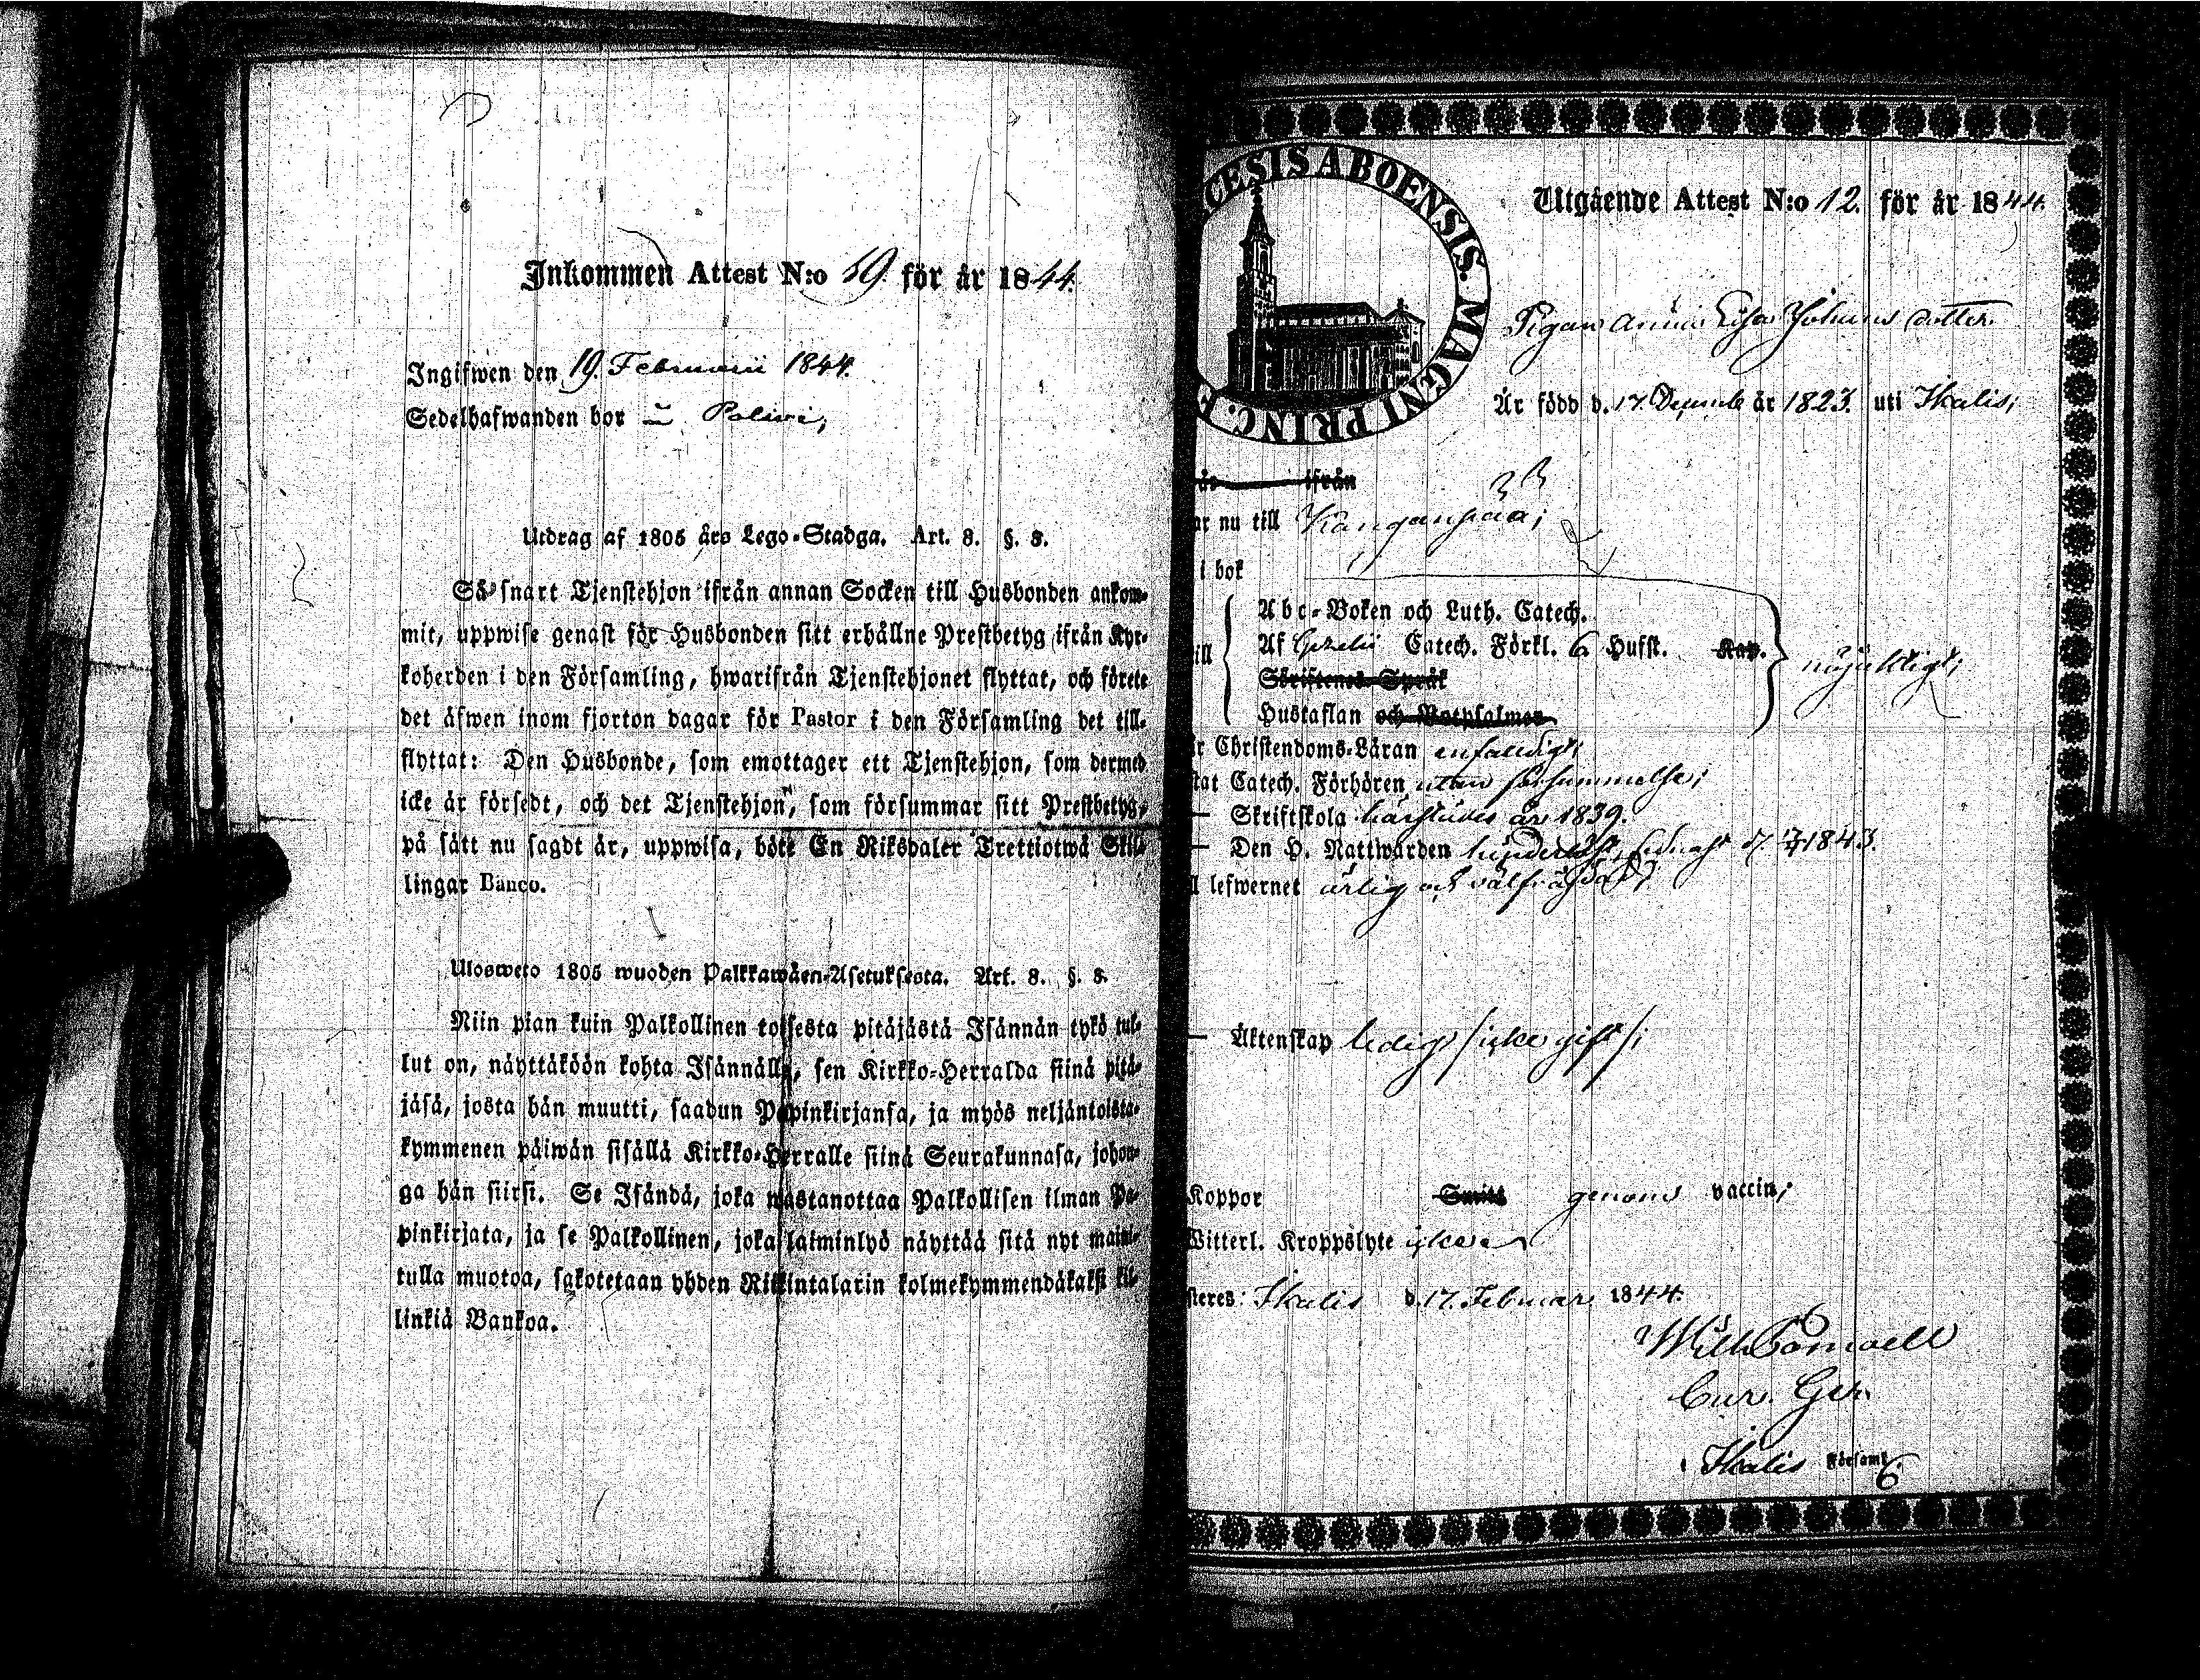 Inkommen Attest N:o 19. för år 1844.
Ingifwen den 19. Februarii 1844.
Sedelhafwanden bor i
Utdrag af 1805 års Lego-Stadga. Art. 8. §. 8.
Så snart Tjenstehjon ifrån annan Socken till Husbonden ankom-
mit, uppwise genast för Husbonden sitt erhållne Prestbetyg ifrån Kyr-
koherden i den Församling, hwarifrån Tjenstehjonet flyttat, och förete
det äfwen inom fjorton dagar för Pastor i den Församling det till-
flyttat: Den Husbonde, som emottager ett Tjenstehjon, som dermed
icke är försedt, och det Tjenstehjon, som försummar sitt Prestbetyg,
på sätt nu sagdt är, uppwisa, böte En Riksdaler Trettiotwå Skil-
lingar Banco.
Ulosweto 1805 wuoden Palkkawäen-Asetuksesta. Art. 8. §. 8.
Niin pian kuin Palkollinen toisesta pitäjästä Isännän tykö tul-
lut on, näyttäköön kohta Isännälle, sen Kirkko-Herralda siinä pitä-
jäsä, josta hän muutti, saadun Papinkirjansa, ja myös neljäntoista-
kymmenen päiwän sisällä Kirkko-Herralle siinä Seurakunnasa, johon-
ga hän siirsi. Se Isändä, joka wastanottaa Palkollisen ilman Pa-
pinkirjata, ja se Palkollinen, joka laiminlyö näyttää sitä nyt maini-
tulla muotoa, sakotetaan yhden Riikintalarin kolmekymmendäkaksi kil-
linkiä Bankoa.
CESIS ABOENSIS. MAGNI PRINC. F
Utgående Attest N:o 12. för år 1844.
Pigan Anna Lisa Johans dotter
Är född d. 17. Decemb. år 1823. uti Ikalis;
ifrån
ar nu till Kanganpää;
i bok
Abc-Boken och Luth. Catech.
ill Af Catech. Förkl. 6 Hufst. Kap.
Skriftenes Språk
Hustaflan och Botpsalmer
r Christendoms-Läran enfaldigt;
tat Catech. Förhören utan försummelse;
Skriftskola härstädes år 1839.
Den H. Nattwarden 1843.
l lefwernet ärlig och välfräjdad;
Äktenskap ledig /icke gift/;
Koppor Smitt genom vaccin;
Witterl. Kroppslyte
steres: Ikalis d. 17. Februar 1844.
Wilh
Cur. Ger.
Ikalis Församl.
6